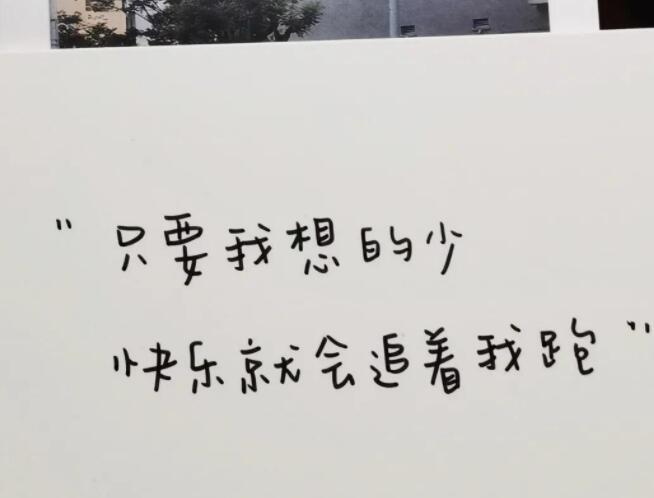 "只要我想的少
快乐就会追着我跑"